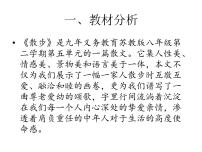 一、教材分析
• 《散步》是九年义务教育苏教版八年级第
二学期第五单元的一篇散文。它集人性美、
情感美、景物美于一体，以其语言的平实
优美，自然流畅著称。可以说，本文不
仅为我们展示了一幅一家人散步时互敬互
爱、融洽和睦的画卷，更为我们谱写了一
曲尊老爱幼的颂歌，字里行间流淌着沉淀
在我们每个人内心深处的挚爱亲情，渗
透着肩负重任的中年人对于生活的高度使
命感。